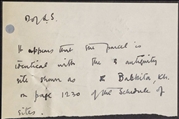 D of L.S.
It appears that the parcel is
identical with the antiquity
site shown as Babbita Kh.
on page 1230 of the Schedule of
sites.